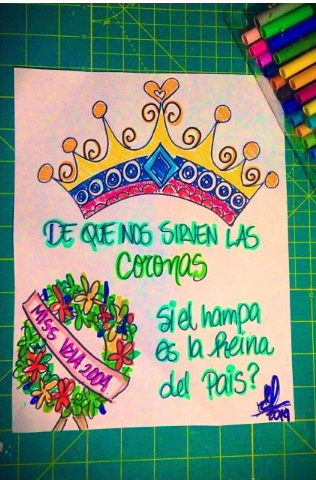 DE QUE NOS SIRVEN LAS
CORONAS
si el hampa
es la Reina
del País?
MISS VZLA 2004
2014